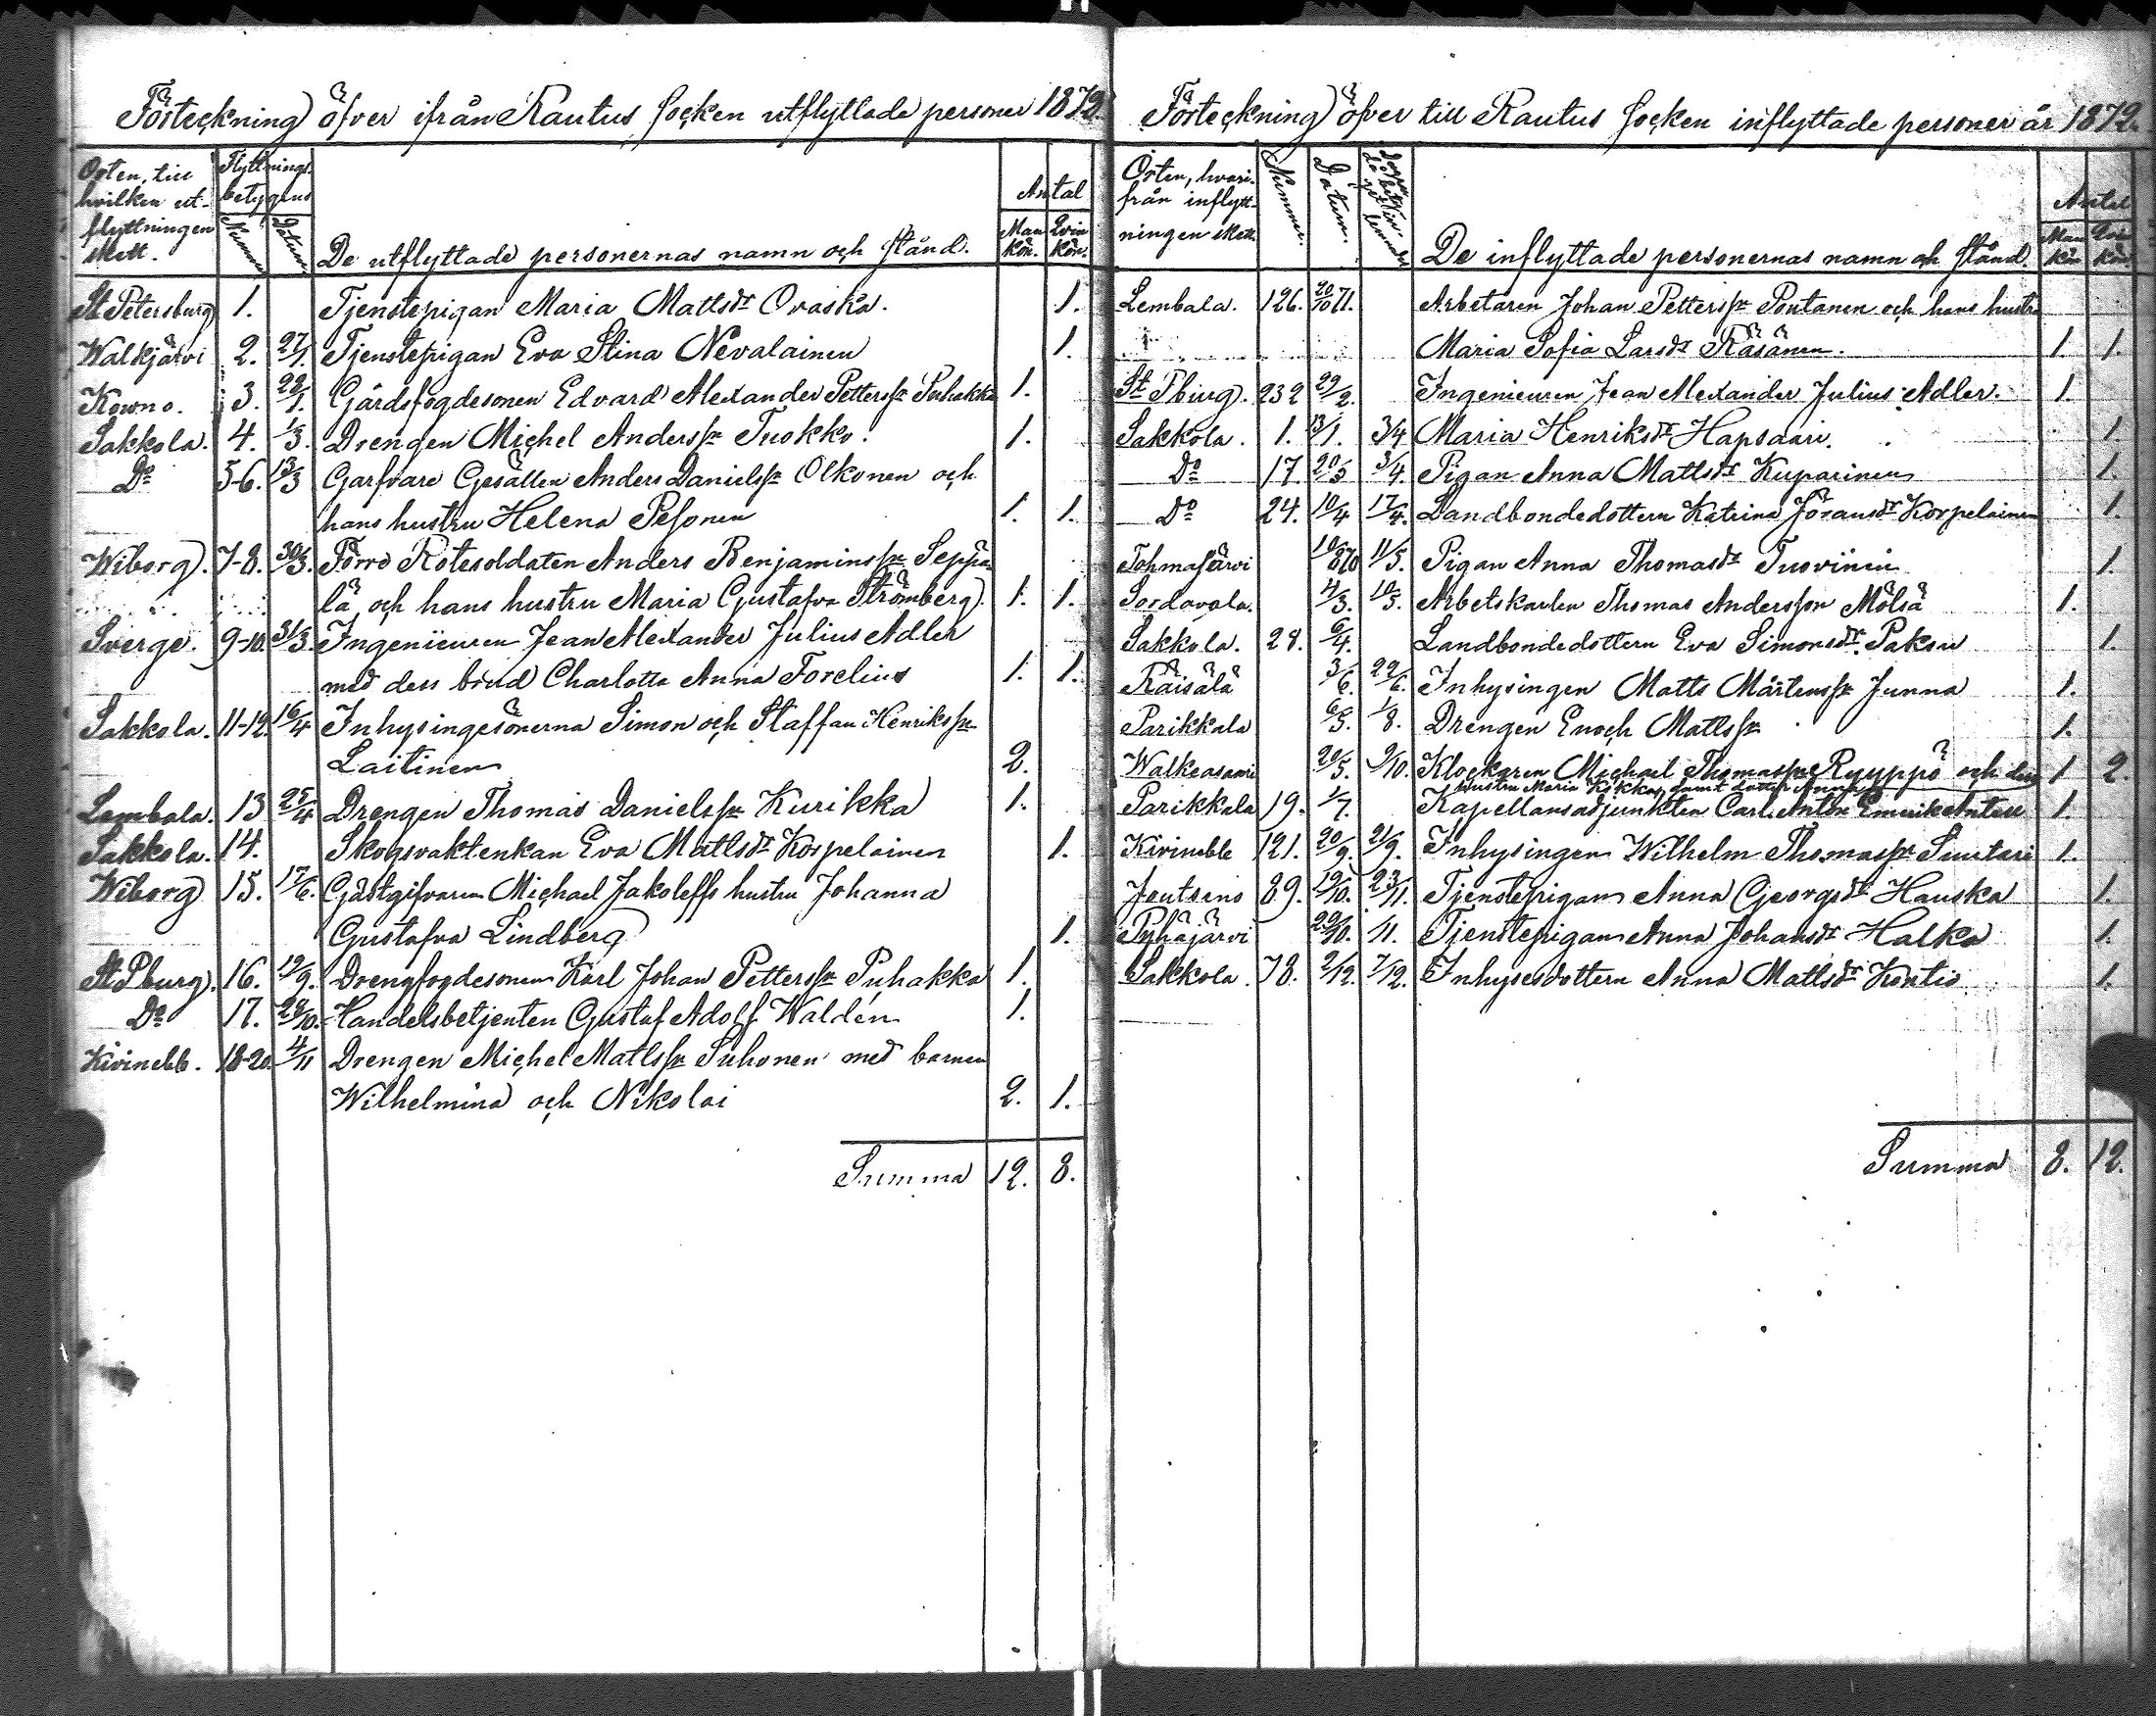 Förteckning öfver ifrån Rautus socken utflyttade personer 1872.
Orten, till hvilken utflyttningen skett. Flyttningsbetygens Nummer Datum De utflyttade personernas namn och stånd. Antal Mankön. Qvinkön.
St Petersburg 1. Tjenstepigan Maria Mattsdr Oraska. 1.
Walkjärvi 2. 27/1. Tjenstepigan Eva Stina Nevalainen 1.
Kowno. 3. 29/1. Gårdsfogdesonen Edvard Alexander Petterssn Puhakka 1.
Sakkola. 4. 1/3. Drengen Michel Anderssn Tuokko. 1.
Do 5-6. 13/3 Garfvare Gesällen Anders Danielssn Olkonen och
hans hustru Helena Pesonen 1. 1.
Wiborg. 7-8. 30/3. Förrd Rotesoldaten Anders Benjaminssn Seppä
lä, och hans hustru Maria Gustafva Strömberg. 1. 1.
Sverge. 9-10. 31/3. Ingeniieuren Jean Alexander Julius Adler
med dess brud Charlotta Anna Forelius 1. 1.
Sakkola. 11-12. 16/4 Inhysingesönerna Simon och Staffan Henrikssn
Laitinen 2.
Lembala. 13 25/4 Drengen Thomas Danielssn Kurikka 1.
Sakkola. 14. Skogsvaktenkan Eva Mattsdr Korpelainen 1.
Wiborg 15. 17/6. Gästgifvaren Michael Jakoleffs hustru Johanna
Gustafva Lindberg 1.
St Pburg. 16. 19/9. Drengfogdesonen Karl Johan Petterssn Puhakka 1.
Do 17. 29/10. Handelsbetjenten Gustaf Adolf Waldén 1.
Kivinebb. 18-20. 4/11 Drengen Michel Mattssn Suhonen med barnen
Wilhelmina och Nikolai 2. 1.
Summa 12. 8.
Förteckning öfver till Rautus socken inflyttade personer år 1872.
Orten, hvarifrån inflyttningen skett. Nummer. Datum. De inflyttade personernas namn och stånd. Antal Mankön Qvinkön
Lembala. 126. 20/10 71. Arbetaren Johan Petterssn Pontanen och hans hustru
Maria Sofia Larsdr Räsänen. 1. 1.
St Pburg. 232 29/2. Ingenieuren Jean Alexander Julius Adler. 1.
Sakkola. 1. 13/1. 3/4 Maria Henriksdr Hapsaari. 1.
Do 17. 20/3 3/4. Pigan Anna Mattsdr Kuparinen 1.
Do 24. 10/4 17/4. Landbondedottern Katrina Jöransdr Korpelainen 1.
Tohmajärvi 11/5. Pigan Anna Thomasdr Tuovinen 1.
Sordavala. 4/3. 10/5. Arbetskarlen Thomas Andersson Mölsä 1.
Sakkola. 28. 6/4. Landbondedottern Eva Simonsdr. Paksu 1.
Räisälä 3/6. 22/6. Inhysingen Matts Mårtenssn Junna 1.
Parikkala 6/5. 1/8. Drengen Enoch Mattssn 1.
Walkeasaari 20/5. 9/10. Klockaren Michael Thomassn Ryyppö och dess 1 2.
hustru Maria Kökka, samt dotter Anna
Parikkala 19. 1/7. Kapellansadjunkten Carl Anton Emerik Anteu 1.
Kivinebb 121. 20/9. 21/9. Inhysingen Wilhelm Thomassn Suutari 1.
Jeutseno 89. 19/10. 23/11. Tjenstepigan Anna Georgsdr Hauska 1.
Pyhäjärvi 29/10. 11. Tjenstepigan Anna Johansdr Halka 1.
Sakkola. 78. 2/12. 7/12. Inhysesdottern Anna Mattsdr Kontio 1.
Summa 8. 12.